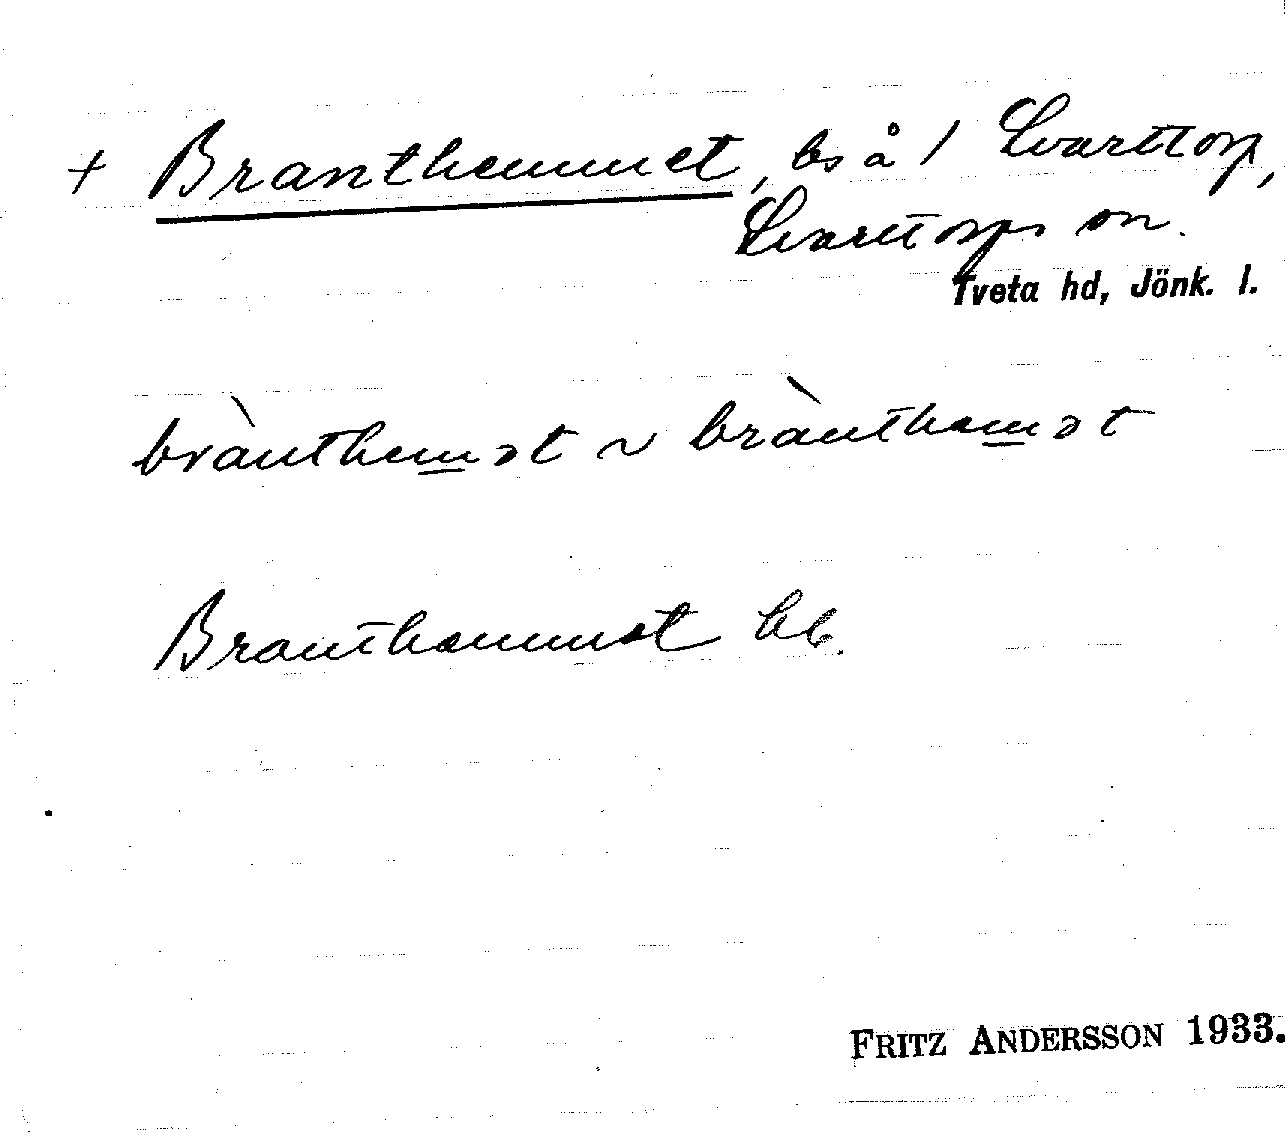 + Branthemmet, bs å 1 Svarttorp,
Svarttorps sn.
Tveta hd, Jönk. l.
brànthem̲ət ~ brànthem̲ət
Branthemmet bb.
FRITZ ANDERSSON 1933.